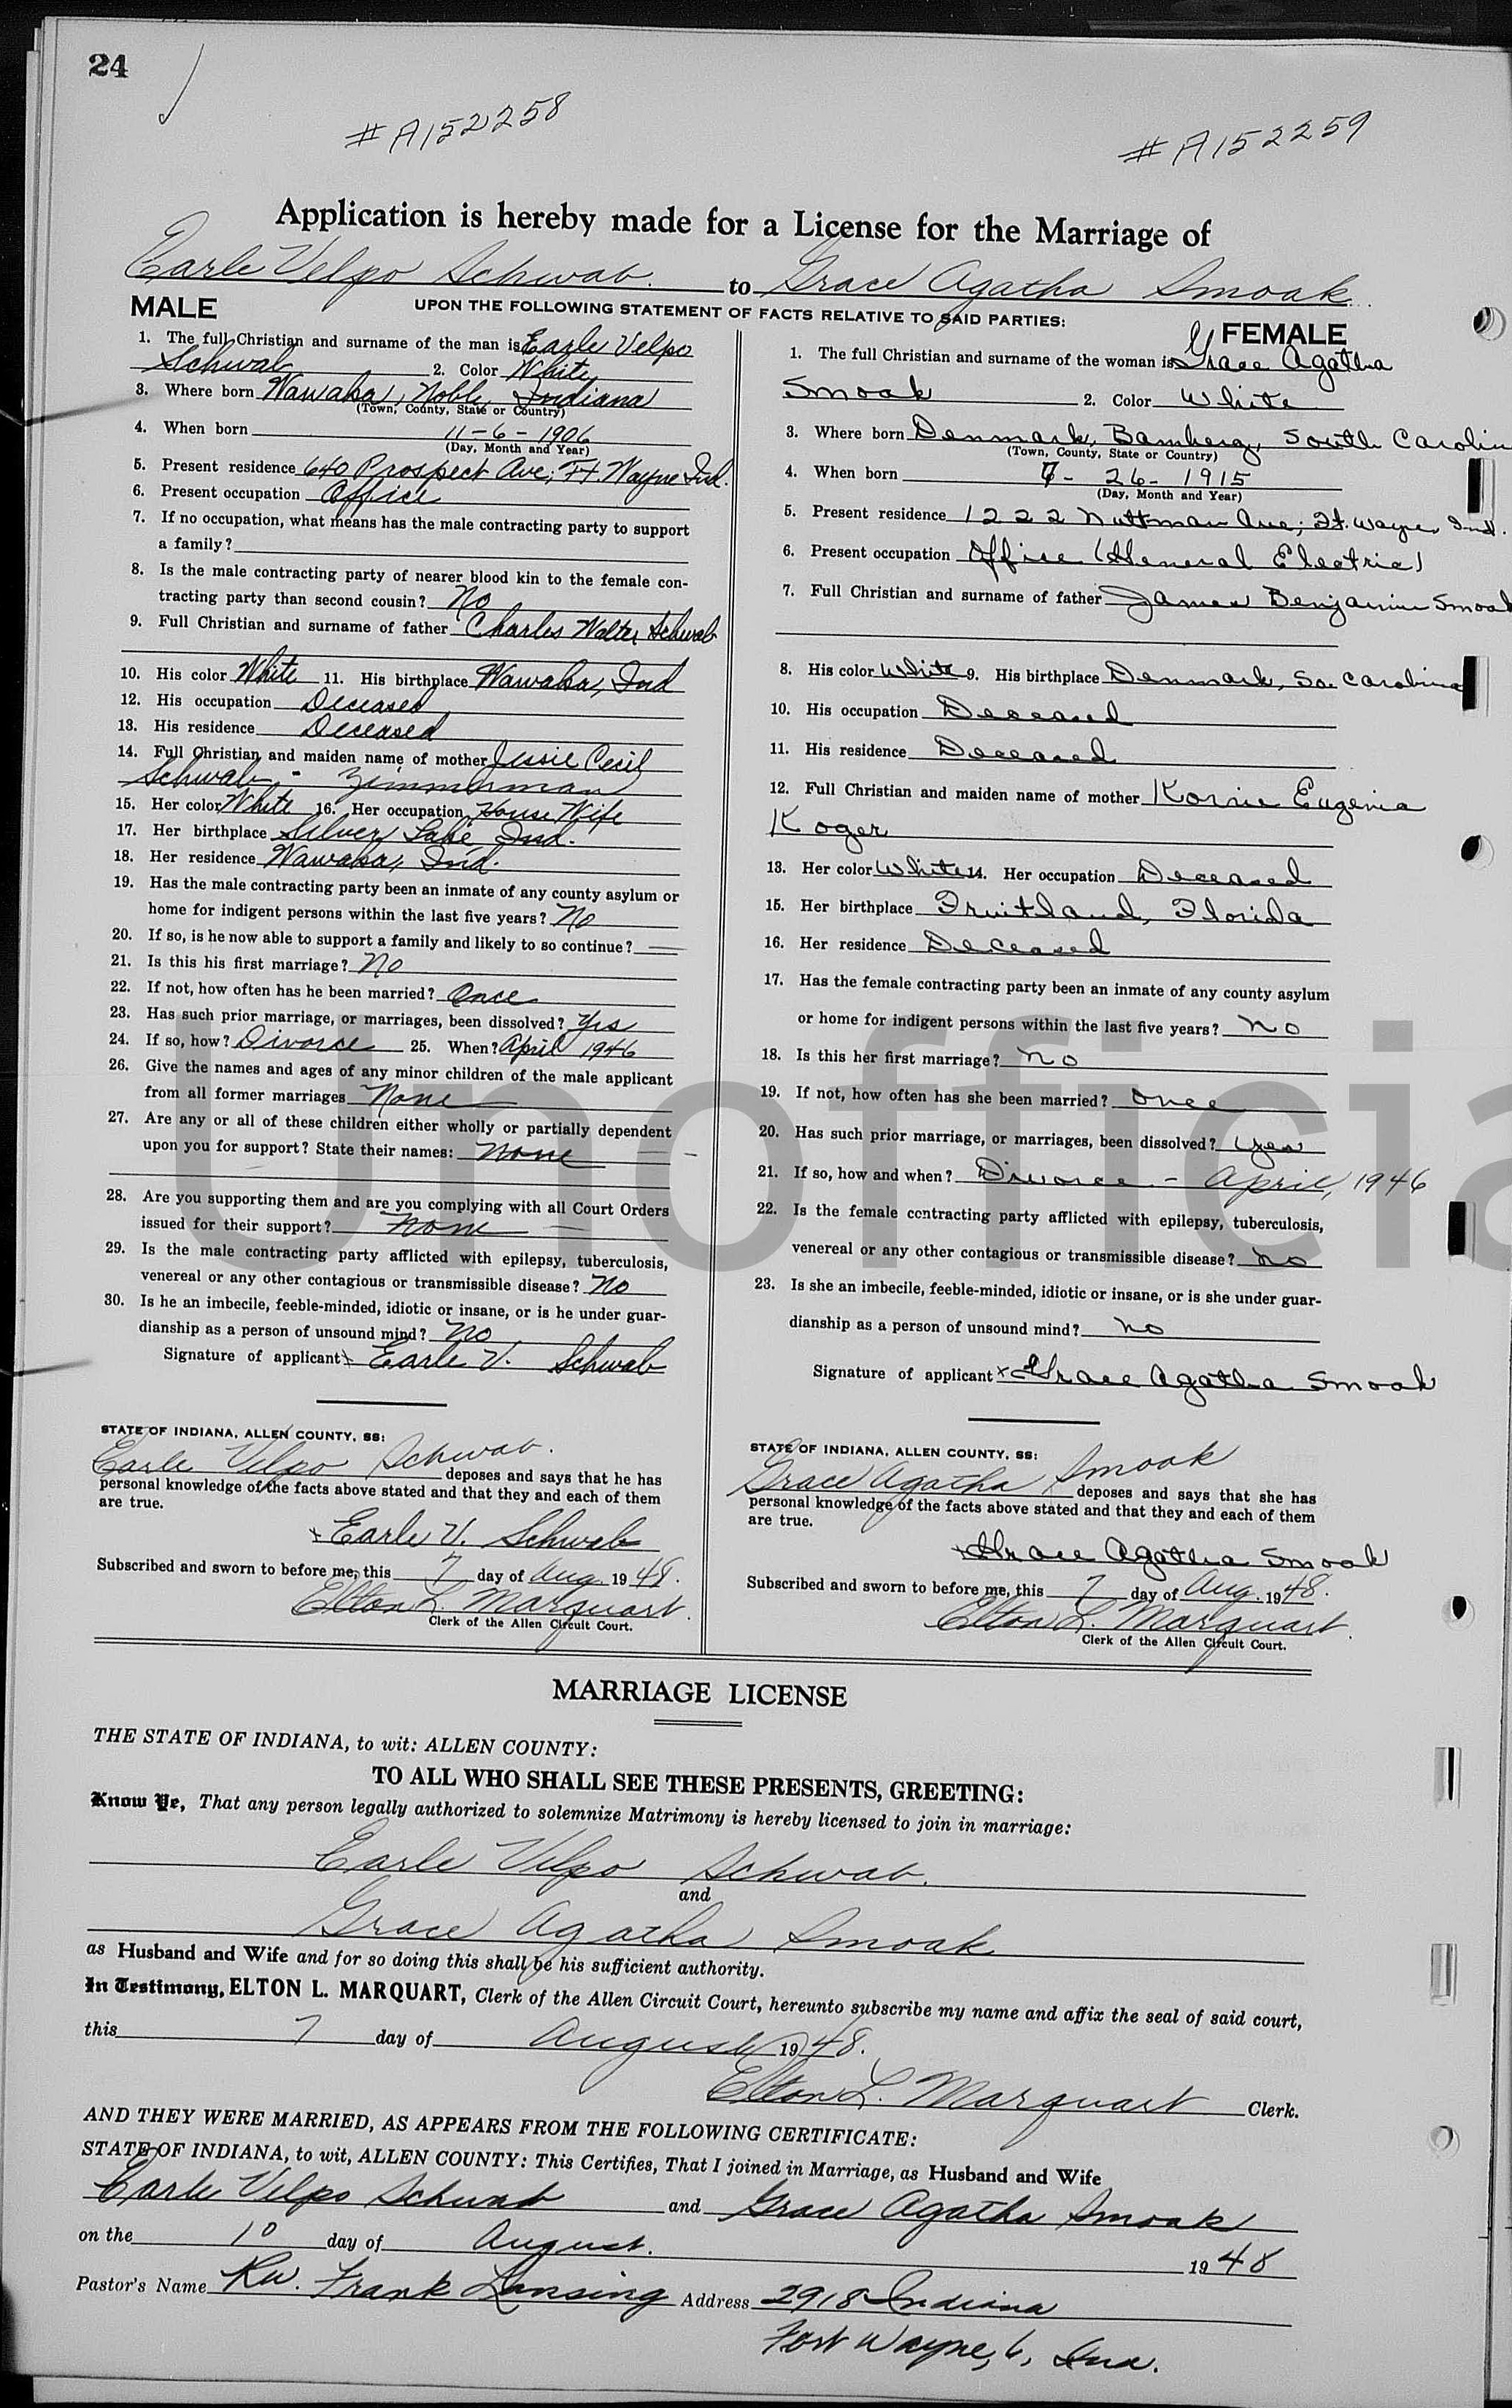 24
#A152258
#A152259
Application is hereby made for a License for the Marriage of
Earle Velpo Schwab. to Grace Agatha Smoak
UPON THE FOLLOWING STATEMENT OF FACTS RELATIVE TO SAID PARTIES:
MALE
1. The full Christian and surname of the man is Earle Velpo
Schwab 2. Color White
3. Where born Wawaka, Noble, Indiana
(Town, County, State or Country)
4. When born 11-6-1906
(Day, Month and Year)
5. Present residence 640 Prospect Ave; Ft. Wayne Ind.
6. Present occupation Office
7. If no occupation, what means has the male contracting party to support
a family?
8. Is the male contracting party of nearer blood kin to the female con-
tracting party than second cousin? No
9. Full Christian and surname of father Charles Walter Schwab
10. His color White 11. His birthplace Wawaka, Ind
12. His occupation Deceased
13. His residence Deceased
14. Full Christian and maiden name of mother Jessie Cecil
Schwab - Zimmerman
15. Her color White 16. Her occupation House Wife
17. Her birthplace Silver Lake Ind.
18. Her residence Wawaka, Ind.
19. Has the male contracting party been an inmate of any county asylum or
home for indigent persons within the last five years? No
20. If so, is he now able to support a family and likely to so continue?
21. Is this his first marriage? No
22. If not, how often has he been married? Once
23. Has such prior marriage, or marriages, been dissolved? Yes
24. If so, how? Divorce 25. When? April 1946
26. Give the names and ages of any minor children of the male applicant
from all former marriages None
27. Are any or all of these children either wholly or partially dependent
upon you for support? State their names: None
28. Are you supporting them and are you complying with all Court Orders
issued for their support? None
29. Is the male contracting party afflicted with epilepsy, tuberculosis,
venereal or any other contagious or transmissible disease? No
30. Is he an imbecile, feeble-minded, idiotic or insane, or is he under guar-
dianship as a person of unsound mind? No
Signature of applicant x Earle V. Schwab
STATE OF INDIANA, ALLEN COUNTY, SS:
Earle Velpo Schwab. deposes and says that he has
personal knowledge of the facts above stated and that they and each of them
are true.
x Earle V. Schwab
Subscribed and sworn to before me, this 7 day of Aug. 1948.
Elton L. Marquart.
Clerk of the Allen Circuit Court.
FEMALE
1. The full Christian and surname of the woman is Grace Agatha
Smoak 2. Color White
3. Where born Denmark, Bamberg, South Carolin
(Town, County, State or Country)
4. When born - 26 - 1915
(Day, Month and Year)
5. Present residence 1222 Nuttman Ave; Ft. Wayne, Ind.
6. Present occupation Office (General Electric)
7. Full Christian and surname of father James Benjamin Smoak
8. His color White 9. His birthplace Denmark, So. Carolina
10. His occupation Deceased
11. His residence Deceased
12. Full Christian and maiden name of mother Korrie Eugenia
Koger
13. Her color White 14. Her occupation Deceased
15. Her birthplace Fruitland, Florida
16. Her residence Deceased
17. Has the female contracting party been an inmate of any county asylum
or home for indigent persons within the last five years? No
18. Is this her first marriage? No
19. If not, how often has she been married? Once
20. Has such prior marriage, or marriages, been dissolved? Yes
21. If so, how and when? Divorce - April, 1946
22. Is the female contracting party afflicted with epilepsy, tuberculosis,
venereal or any other contagious or transmissible disease? No
23. Is she an imbecile, feeble-minded, idiotic or insane, or is she under guar-
dianship as a person of unsound mind? No
Signature of applicant x Grace Agatha Smoak
STATE OF INDIANA, ALLEN COUNTY, SS:
Grace Agatha Smoak deposes and says that she has
personal knowledge of the facts above stated and that they and each of them
are true.
x Grace Agatha Smoak
Subscribed and sworn to before me, this 7 day of Aug. 1948.
Elton L. Marquart.
Clerk of the Allen Circuit Court.
Unofficia
MARRIAGE LICENSE
THE STATE OF INDIANA, to wit: ALLEN COUNTY:
TO ALL WHO SHALL SEE THESE PRESENTS, GREETING:
Know Ye, That any person legally authorized to solemnize Matrimony is hereby licensed to join in marriage:
Earle Velpo Schwab.
and
Grace Agatha Smoak
as Husband and Wife and for so doing this shall be his sufficient authority.
In Testimony, ELTON L. MARQUART, Clerk of the Allen Circuit Court, hereunto subscribe my name and affix the seal of said court,
this 7 day of August 1948.
Elton L. Marquart Clerk.
AND THEY WERE MARRIED, AS APPEARS FROM THE FOLLOWING CERTIFICATE:
STATE OF INDIANA, to wit, ALLEN COUNTY: This Certifies, That I joined in Marriage, as Husband and Wife
Earle Velpo Schwab and Grace Agatha Smoak
on the 10 day of August. 1948
Pastor's Name Rev. Frank Lansing Address 2918 Indiana
Fort Wayne, 6, Ind.